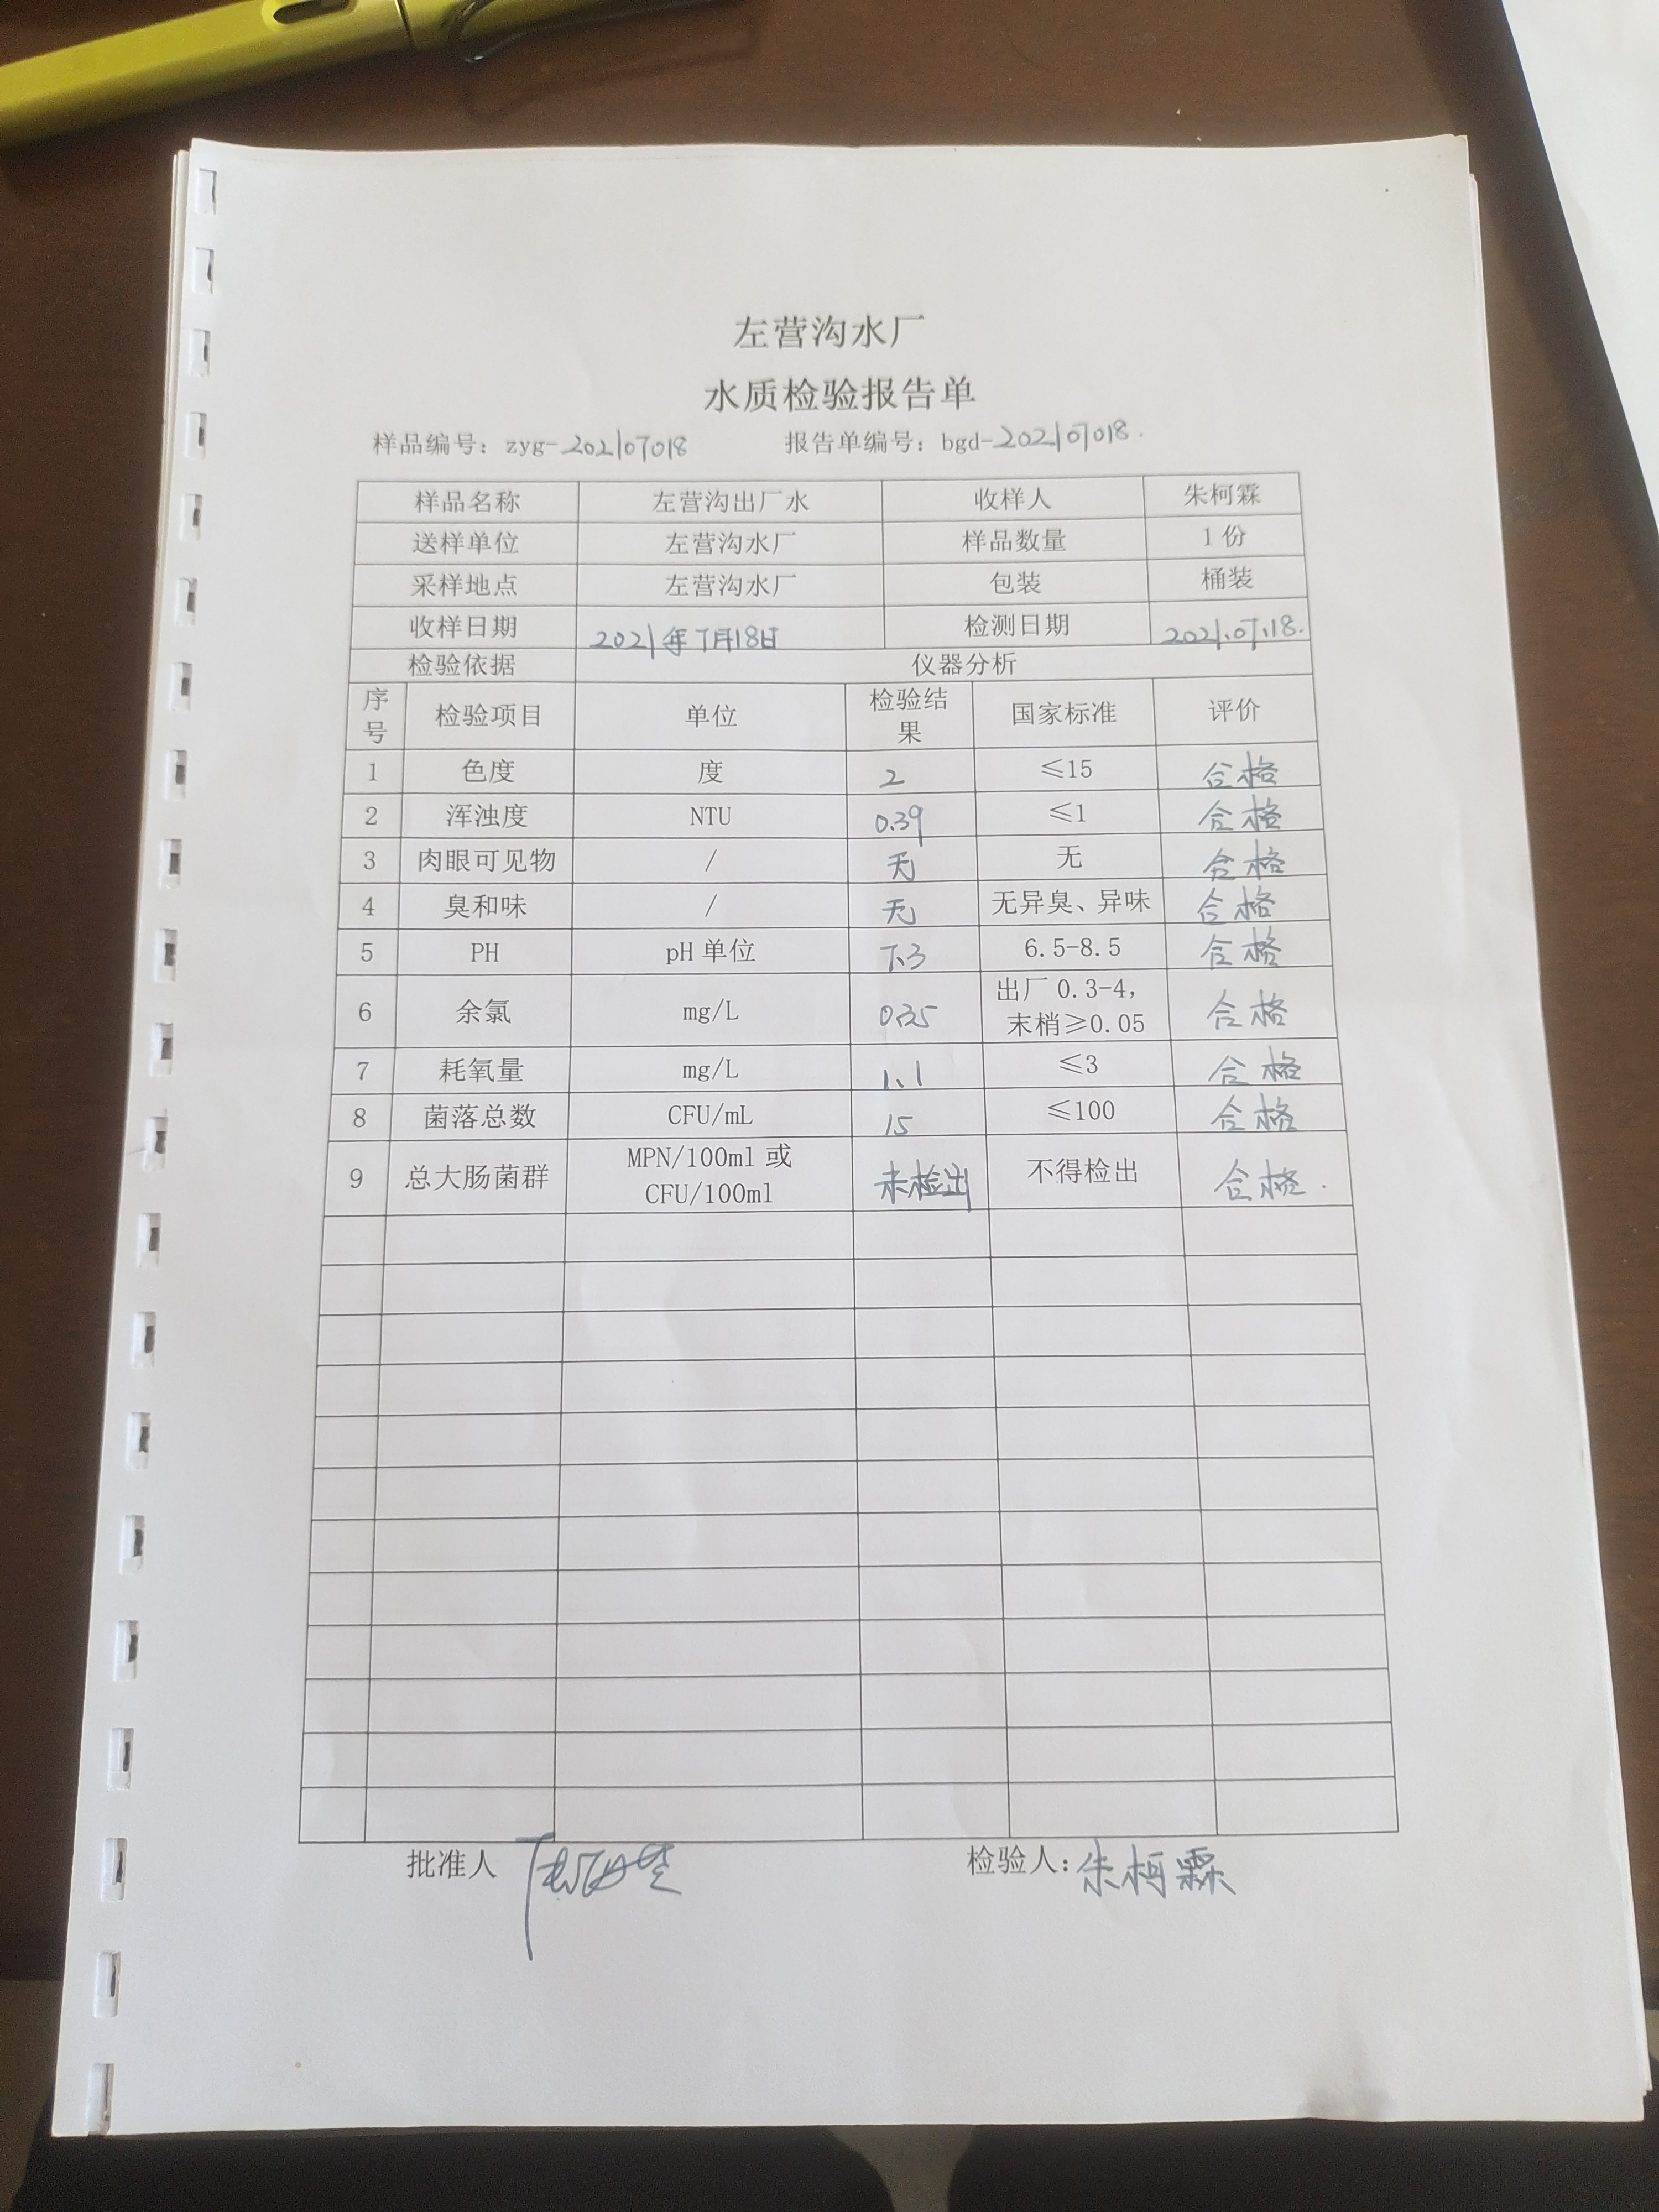 左营沟水厂
水质检验报告单
样品编号：zyg-202107018 报告单编号：bgd-202107018.
样品名称 左营沟出厂水 收样人 朱柯霖
送样单位 左营沟水厂 样品数量 1份
采样地点 左营沟水厂 包装 桶装
收样日期 2021年7月18日 检测日期 2021.07.18.
检验依据 仪器分析
序号 检验项目 单位 检验结果 国家标准 评价
1 色度 度 2 ≤15 合格
2 浑浊度 NTU 0.39 ≤1 合格
3 肉眼可见物 / 无 无 合格
4 臭和味 / 无 无异臭、异味 合格
5 PH pH单位 7.3 6.5-8.5 合格
6 余氯 mg/L 0.35 出厂0.3-4，末梢≥0.05 合格
7 耗氧量 mg/L 1.1 ≤3 合格
8 菌落总数 CFU/mL 15 ≤100 合格
9 总大肠菌群 MPN/100ml或CFU/100ml 未检出 不得检出 合格.
批准人 检验人：朱柯霖